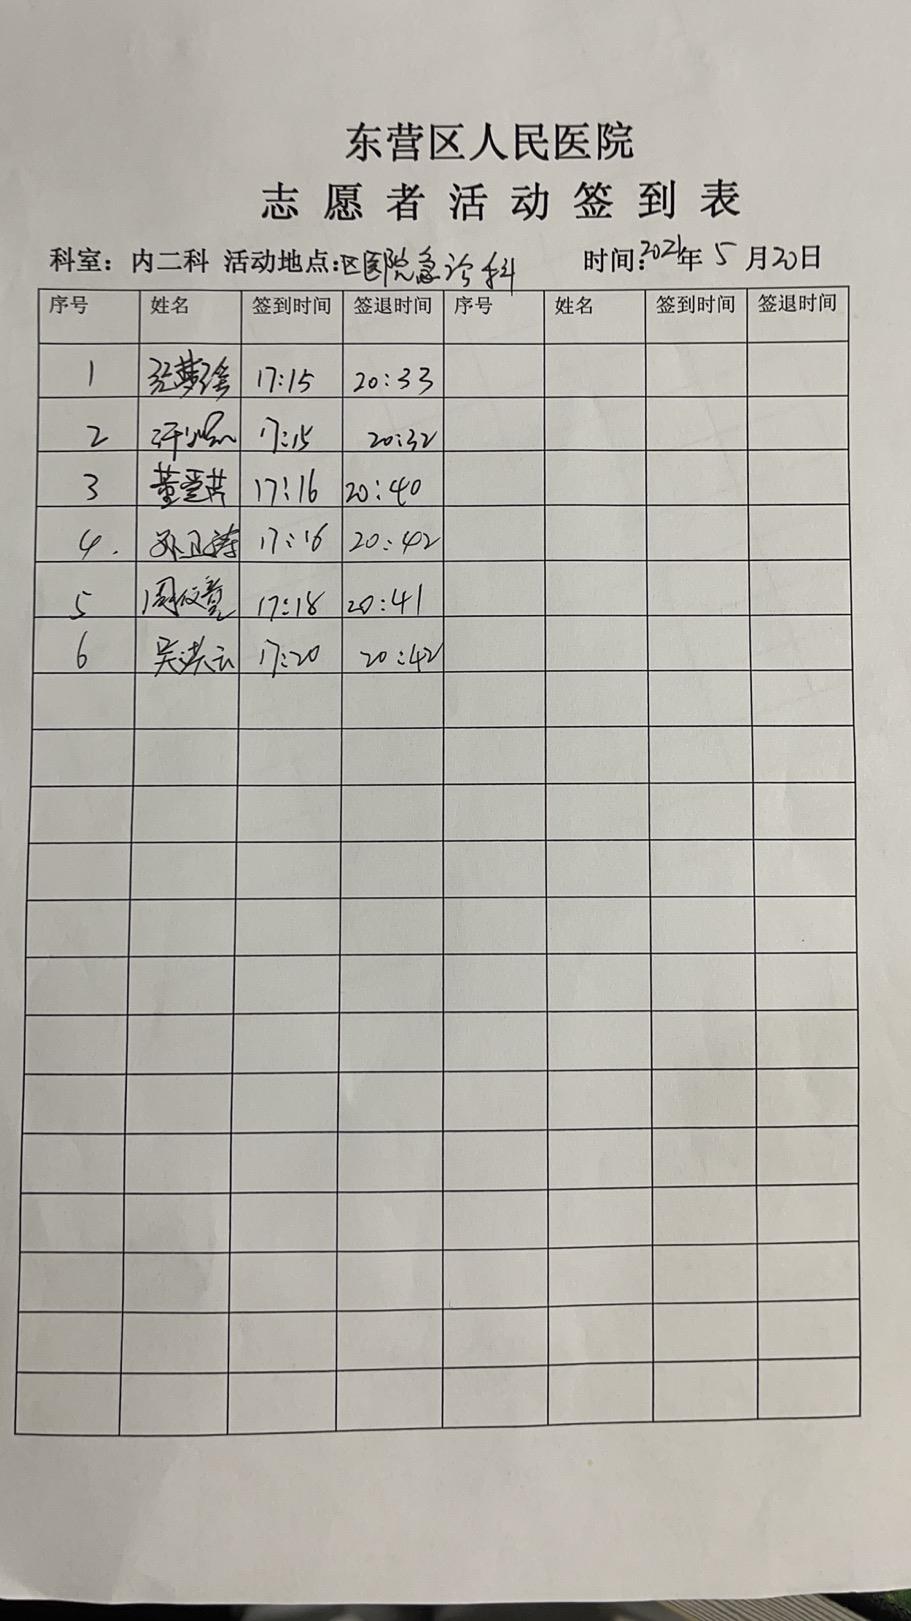 东营区人民医院
志愿者活动签到表
科室：内二科 活动地点：区医院急诊科 时间：2021年5月20日
序号 姓名 签到时间 签退时间 序号 姓名 签到时间 签退时间
1 梦瑶 17:15 20:33
2 17:15 20:32
3 董 17:16 20:40
4. 孙卫涛 17:16 20:42
5 周 17:18 20:41
6 吴洪云 17:20 20:42